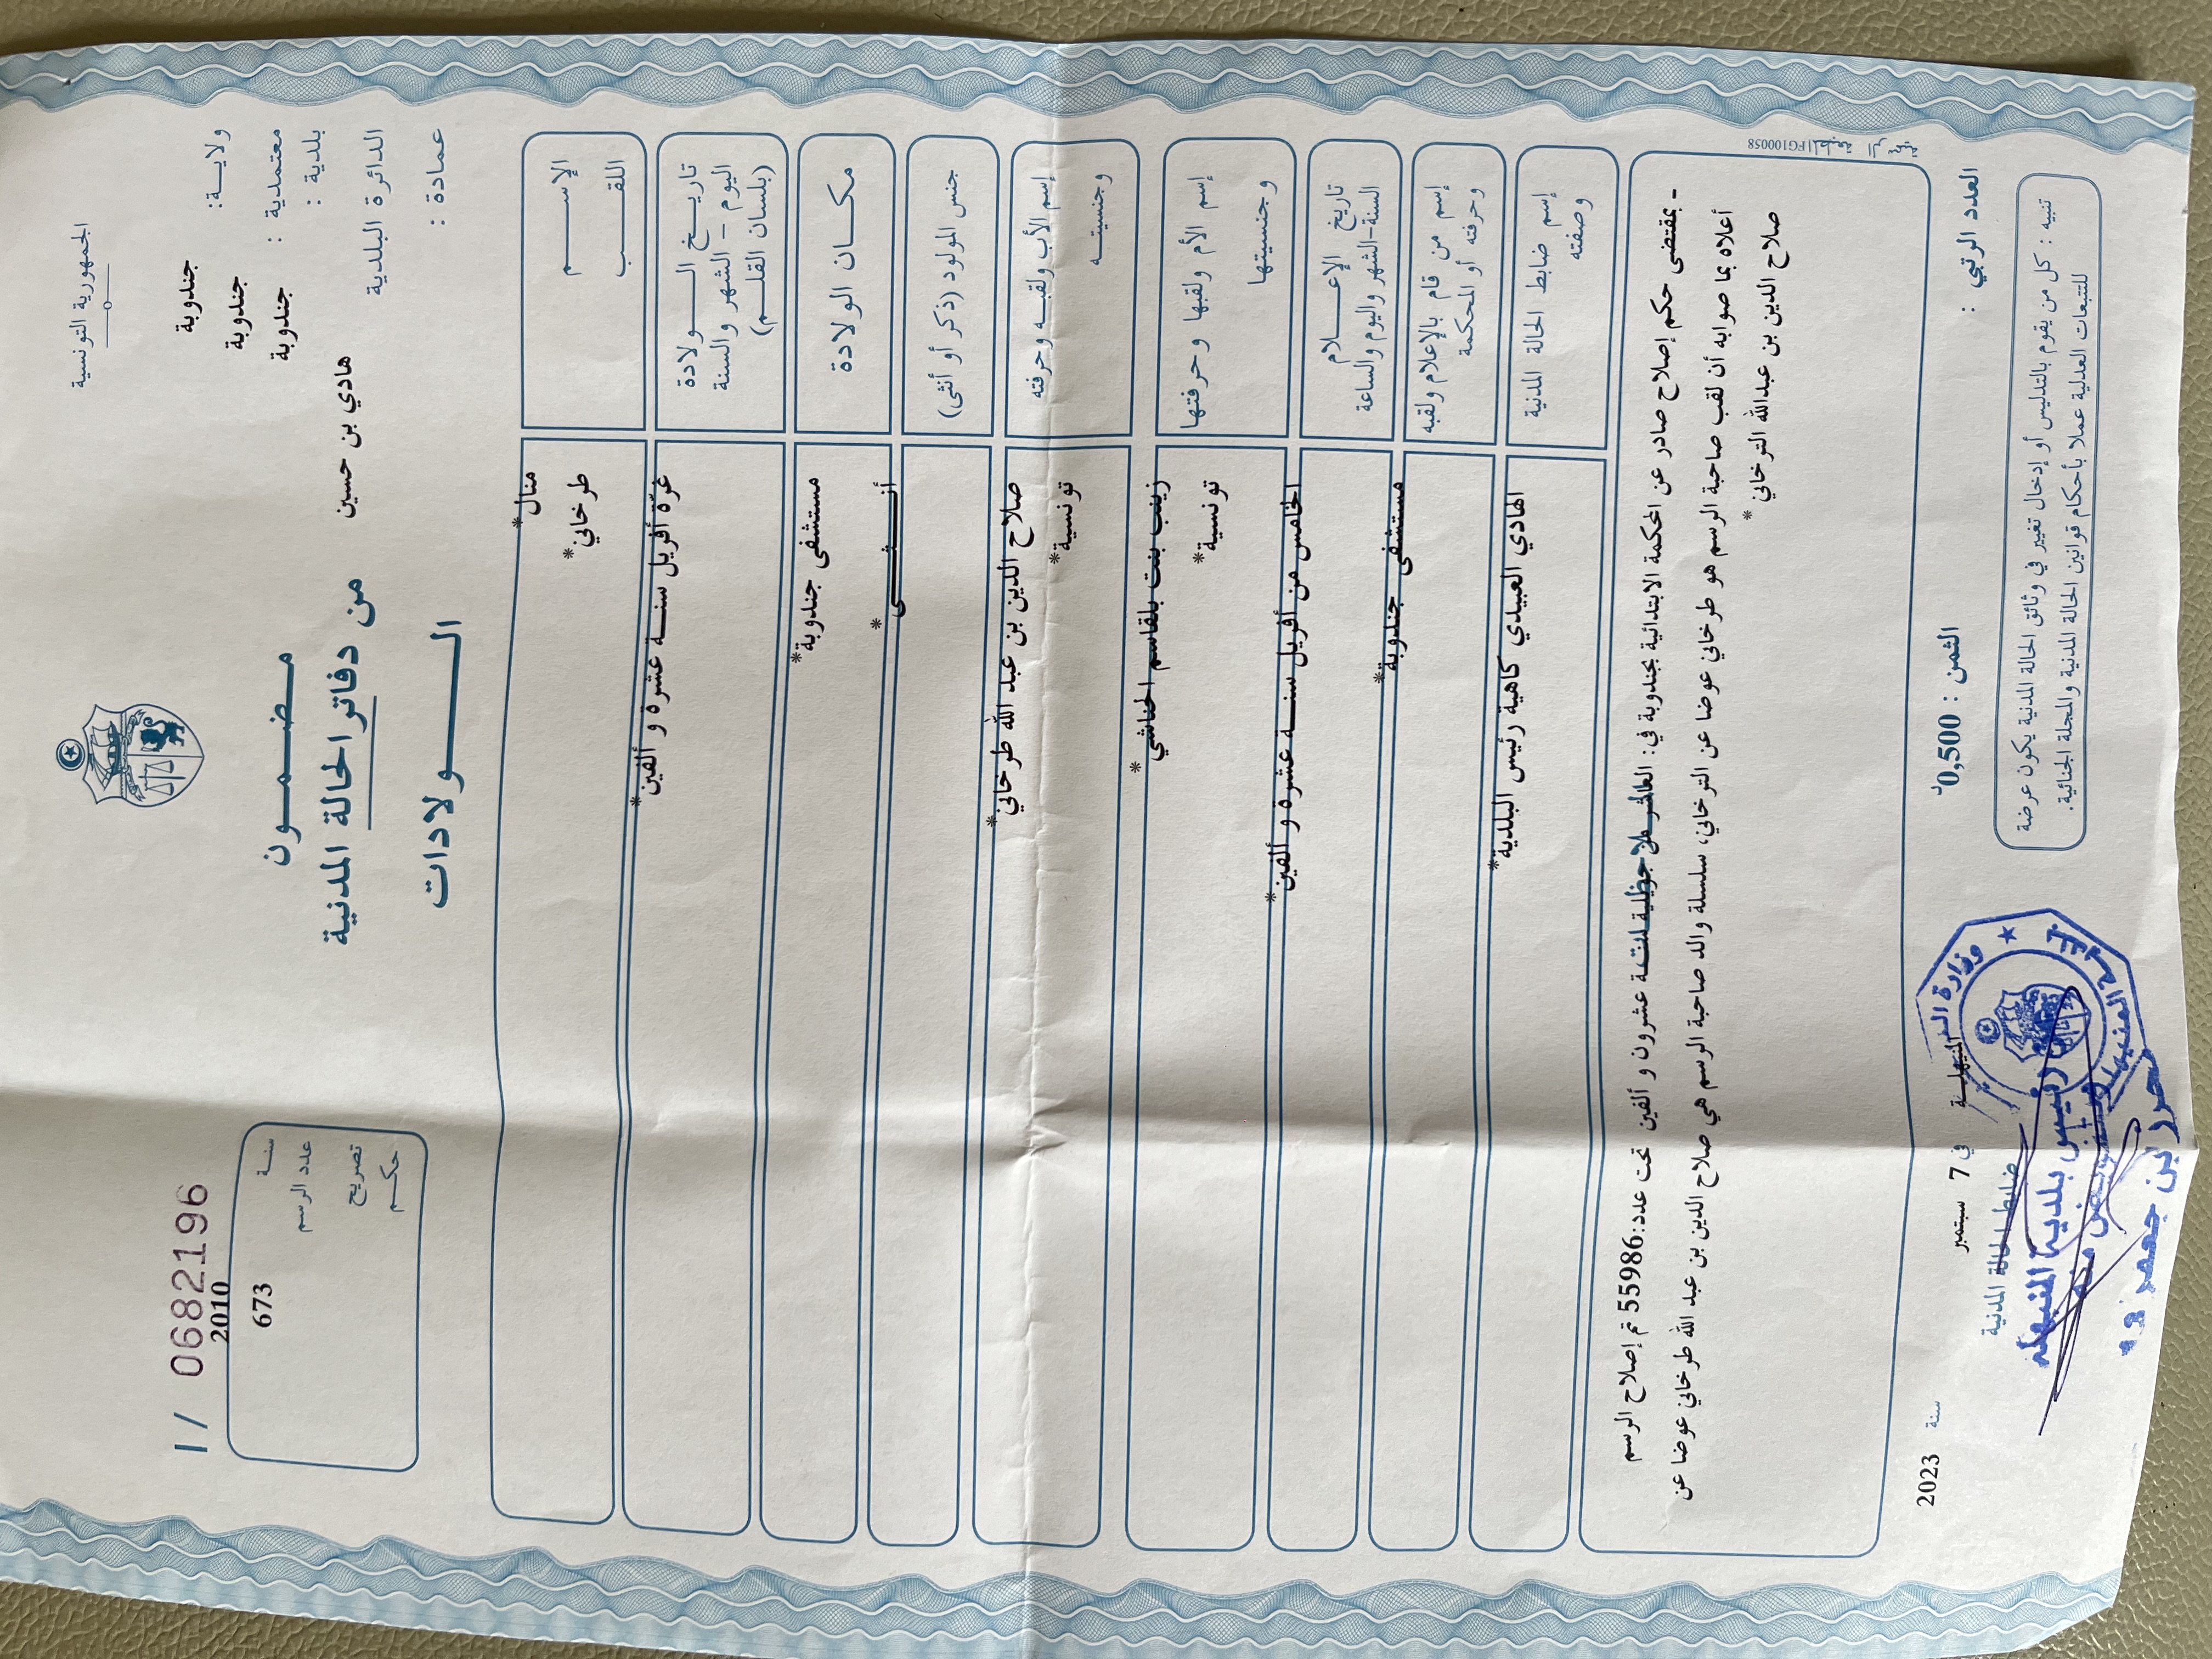 الجمهورية التونسية
ولايـــة: جندوبة
معتمدية : جندوبة
بلدية : جندوبة
الدائرة البلدية هادي بن حسين
عمادة :
مضمـــون
من دفاتر الحالة المدنية
الـــــولادات
I/ 0682196
سنـة 2010
عدد الرسم 673
تصريح
حكـم
الإســــم منال*
اللقـــب طرخاني*
تاريـــخ الـــــولادة غرّة أفريل سنـــة عشرة و ألفين*
اليوم - الشهر والسنة
(بلسان القلـــم)
مكـــان الولادة مستشفى جندوبة*
جنس المولود (ذكر أو أنثى) أنــــثــــى*
إسم الأب ولقبـه وحرفته صلاح الدين بن عبد الله طرخاني*
وجنسيتـــه تونسية*
إسم الأم ولقبها وحرفتها زينب بنت بلقاسم الحناشي*
وجنسيتها تونسية*
تاريخ الإعـــــلام الخامس من أفريل سنـــة عشرة و ألفين*
السنة-الشهر واليوم والساعة
إسم من قام بالإعلام ولقبه مستشفى جندوبة*
وحرفته أو المحكمة
إسم ضابط الحالة المدنية الهادي العبيدي كاهية رئيس البلدية*
وصفته
- بمقتضى حكم إصلاح صادر عن المحكمة الابتدائية بجندوبة في: سنـة عشرون و ألفين تحت عدد:55986 تم إصلاح الرسم
أعلاه بما صوابه أن لقب صاحبة الرسم هو طرخاني عوضا عن الترخاني، سلسلة والد صاحبة الرسم هي صلاح الدين بن عبد الله طرخاني عوضا عن
صلاح الدين بن عبدالله الترخاني*
المطبعة الرسمية FG100058
العدد الرتبي :
الثمن : 0,500د
المنيهلـــة في 7 سبتمبر سنة 2023
ضابط الحالة المدنية
تنبيه : كل من يقوم بالتدليس أو إدخال تغيير في وثائق الحالة المدنية يكون عرضة
للتتبعات العدلية عملا بأحكام قوانين الحالة المدنية والمجلة الجنائية.
بلدية المنيهلة